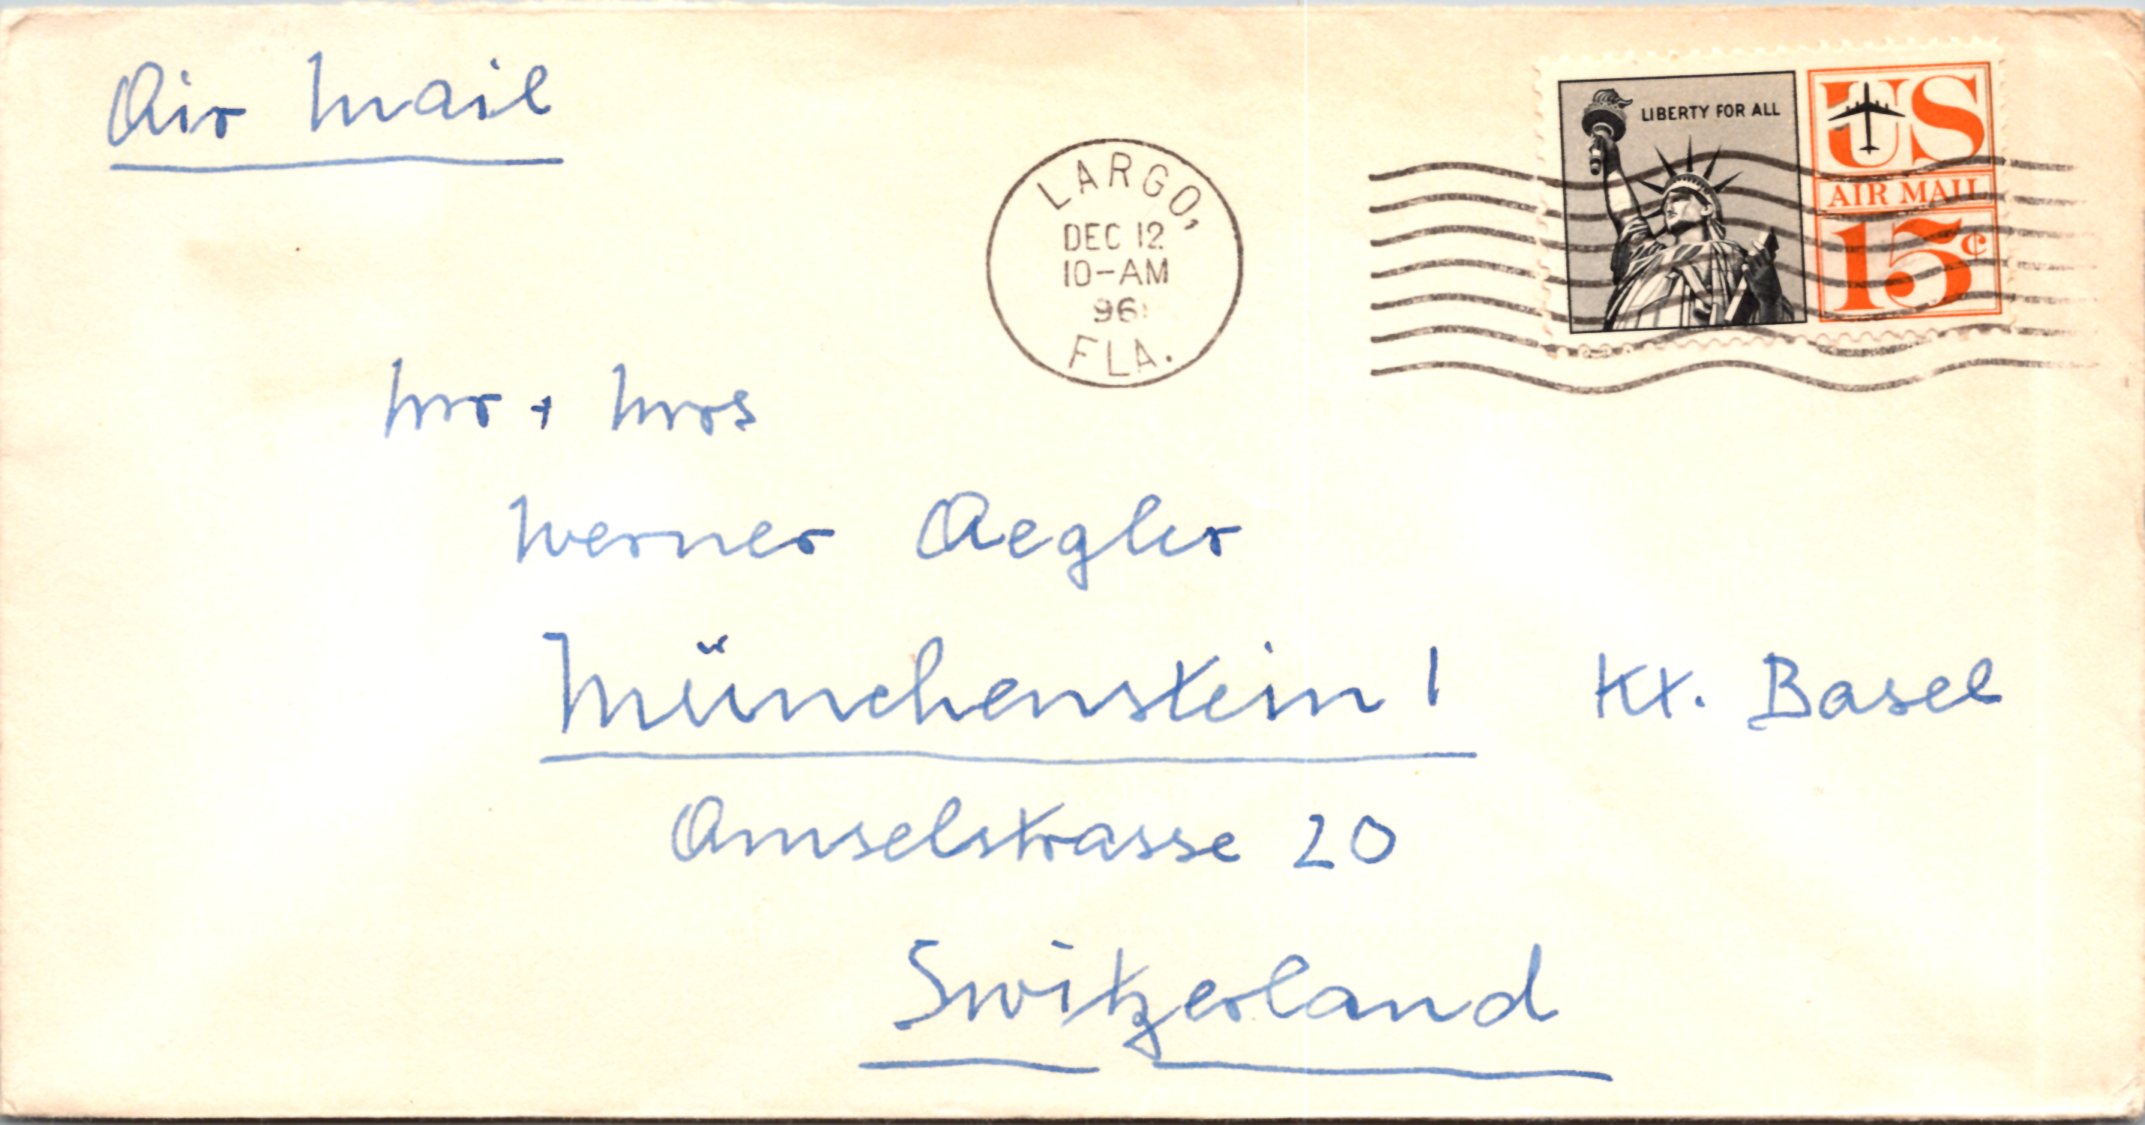 Air Mail
LARGO,
DEC 12
10-AM
96
FLA.
LIBERTY FOR ALL
US
AIR MAIL
15¢
Mr + Mrs
Werner Aegler
Münchenstein 1 Kt. Basel
Amselstrasse 20
Switzerland